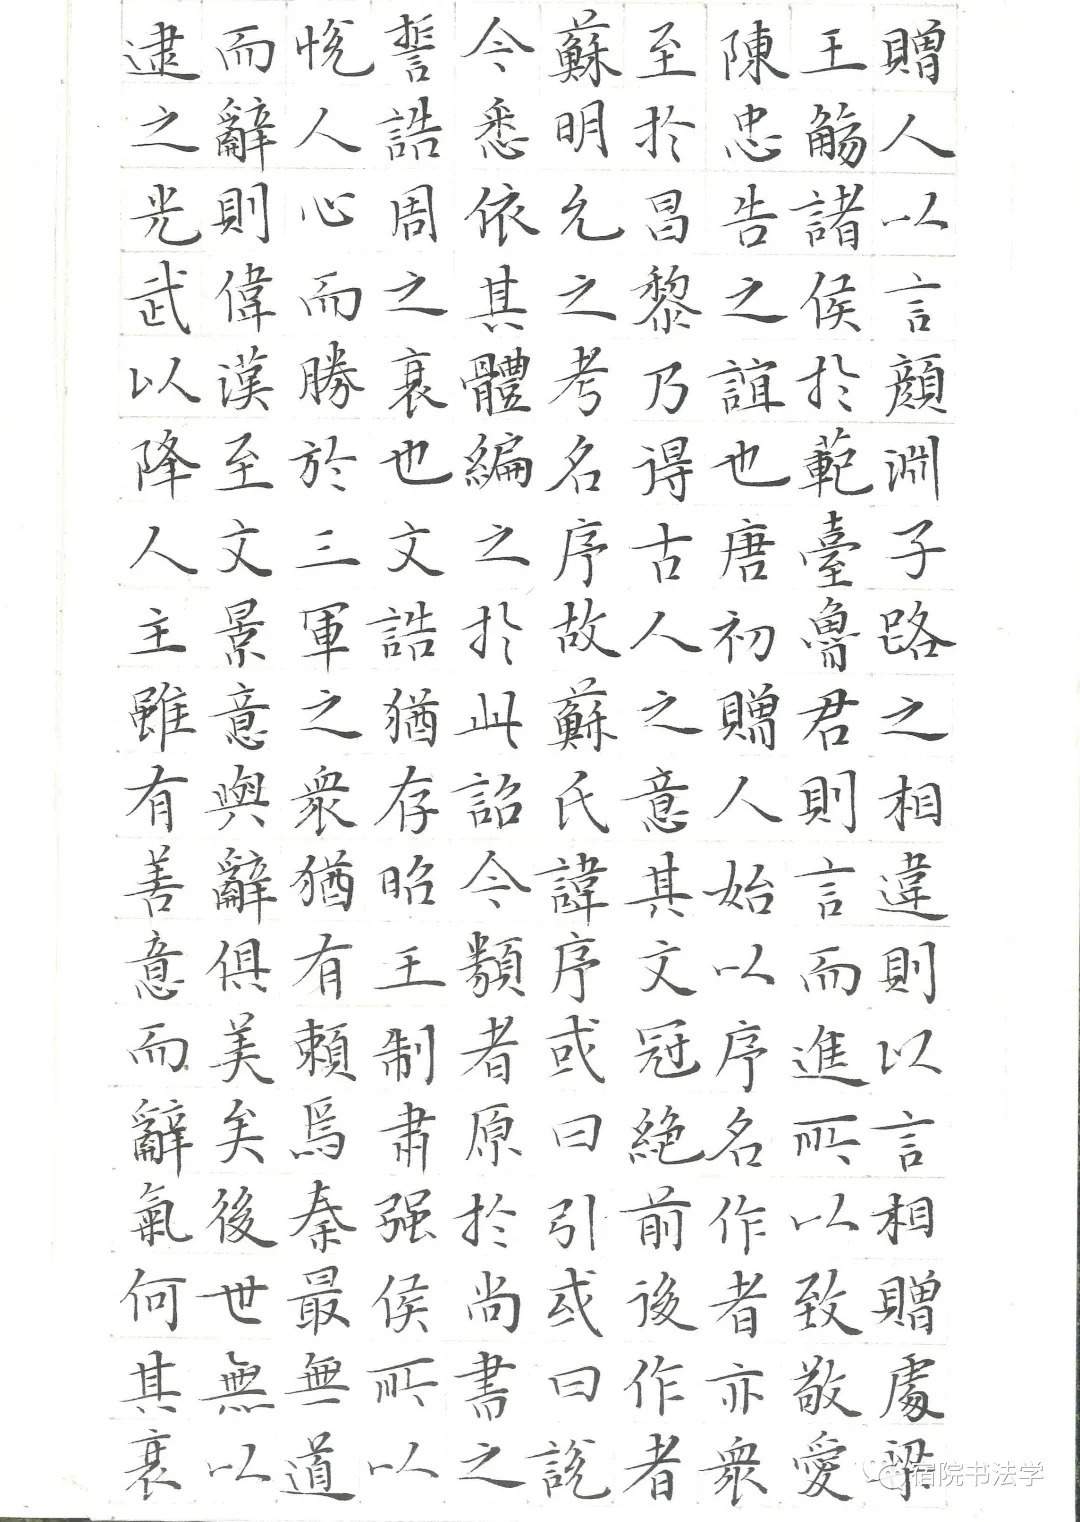 贈人以言顏淵子路之相違則以言相贈處梁
王觴諸侯於範臺魯君則言而進所以致敬愛
陳忠告之誼也唐初贈人始以序名作者亦衆
至於昌黎乃得古人之意其文冠絕前後作者
蘇明允之考名序故蘇氏諱序或曰引或曰說
今悉依其體編之於此詔令類者原於尚書之
誓誥周之衰也文誥猶存昭王制肅强侯所以
悅人心而勝於三軍之衆猶有賴焉秦最無道
而辭則偉漢至文景意與辭俱美矣後世無以
逮之光武以降人主雖有善意而辭氣何其衰
宿院书法学